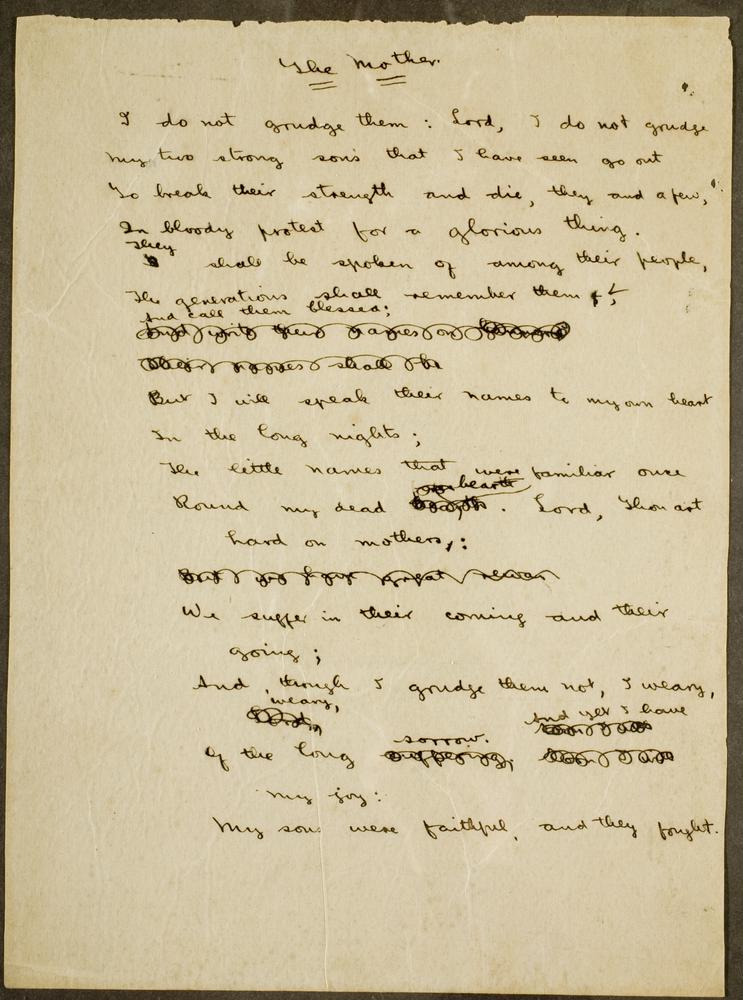 The Mother.
I do not grudge them : Lord, I do not grudge
My two strong sons that I have seen go out
To break their strength and die, they and a few,
In bloody protest for a glorious thing.
They
shall be spoken of among their people,
The generations shall remember them,
And call them blessed;
And write their names on
Their names shall be
But I will speak their names to my own heart
In the long nights ;
The little names that were familiar once
hearth
Round my dead . Lord, Thou art
hard on mothers, :
We suffer in their coming and their
going ;
And, though I grudge them not, I weary,
weary, And yet I have
Lord,
sorrow.
Of the long suffering,
my joy :
My sons were faithful, and they fought.